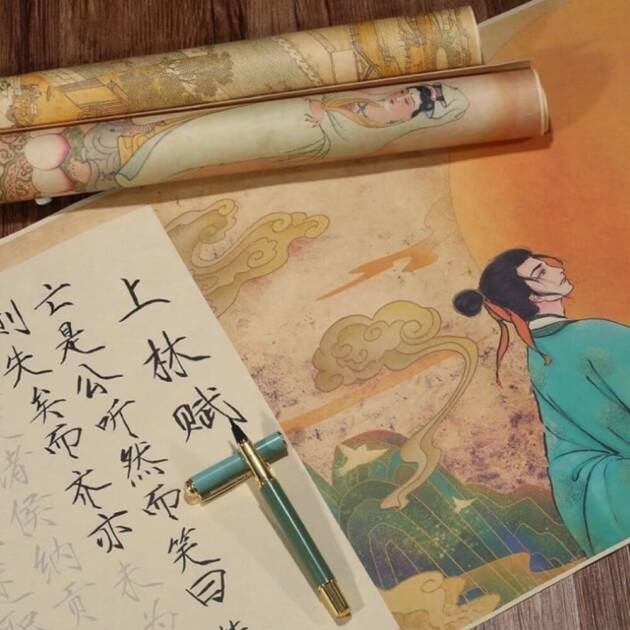 上林赋
亡是公听然而笑曰
则失矣而齐亦未为
诸侯纳贡